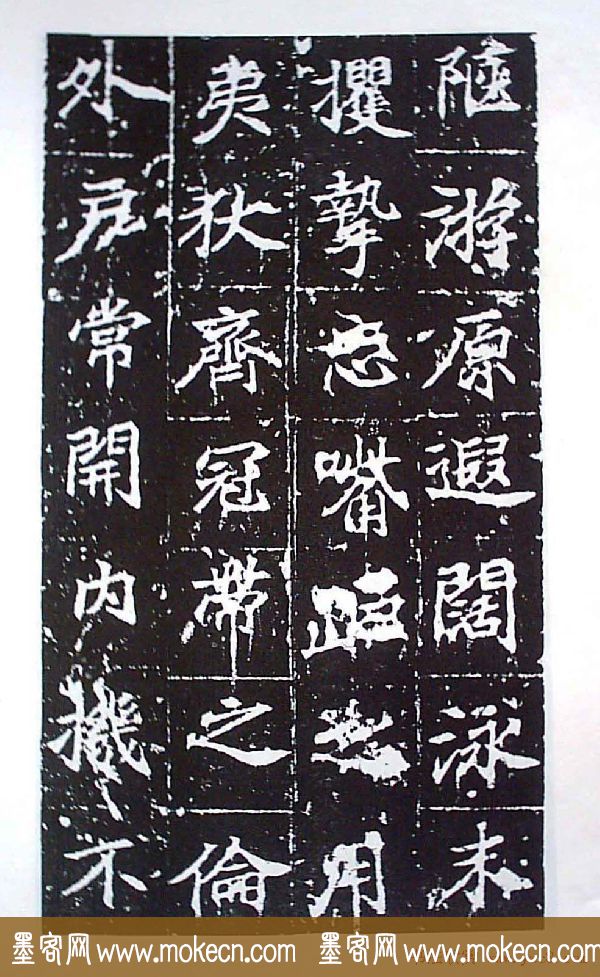 陋游源遐闊泳未
攫摯忘嘴距之用
夷狄齊冠帶之倫
外戶常開內機不
墨客网 www.mokecn.com 墨客网 www.mokecn.com